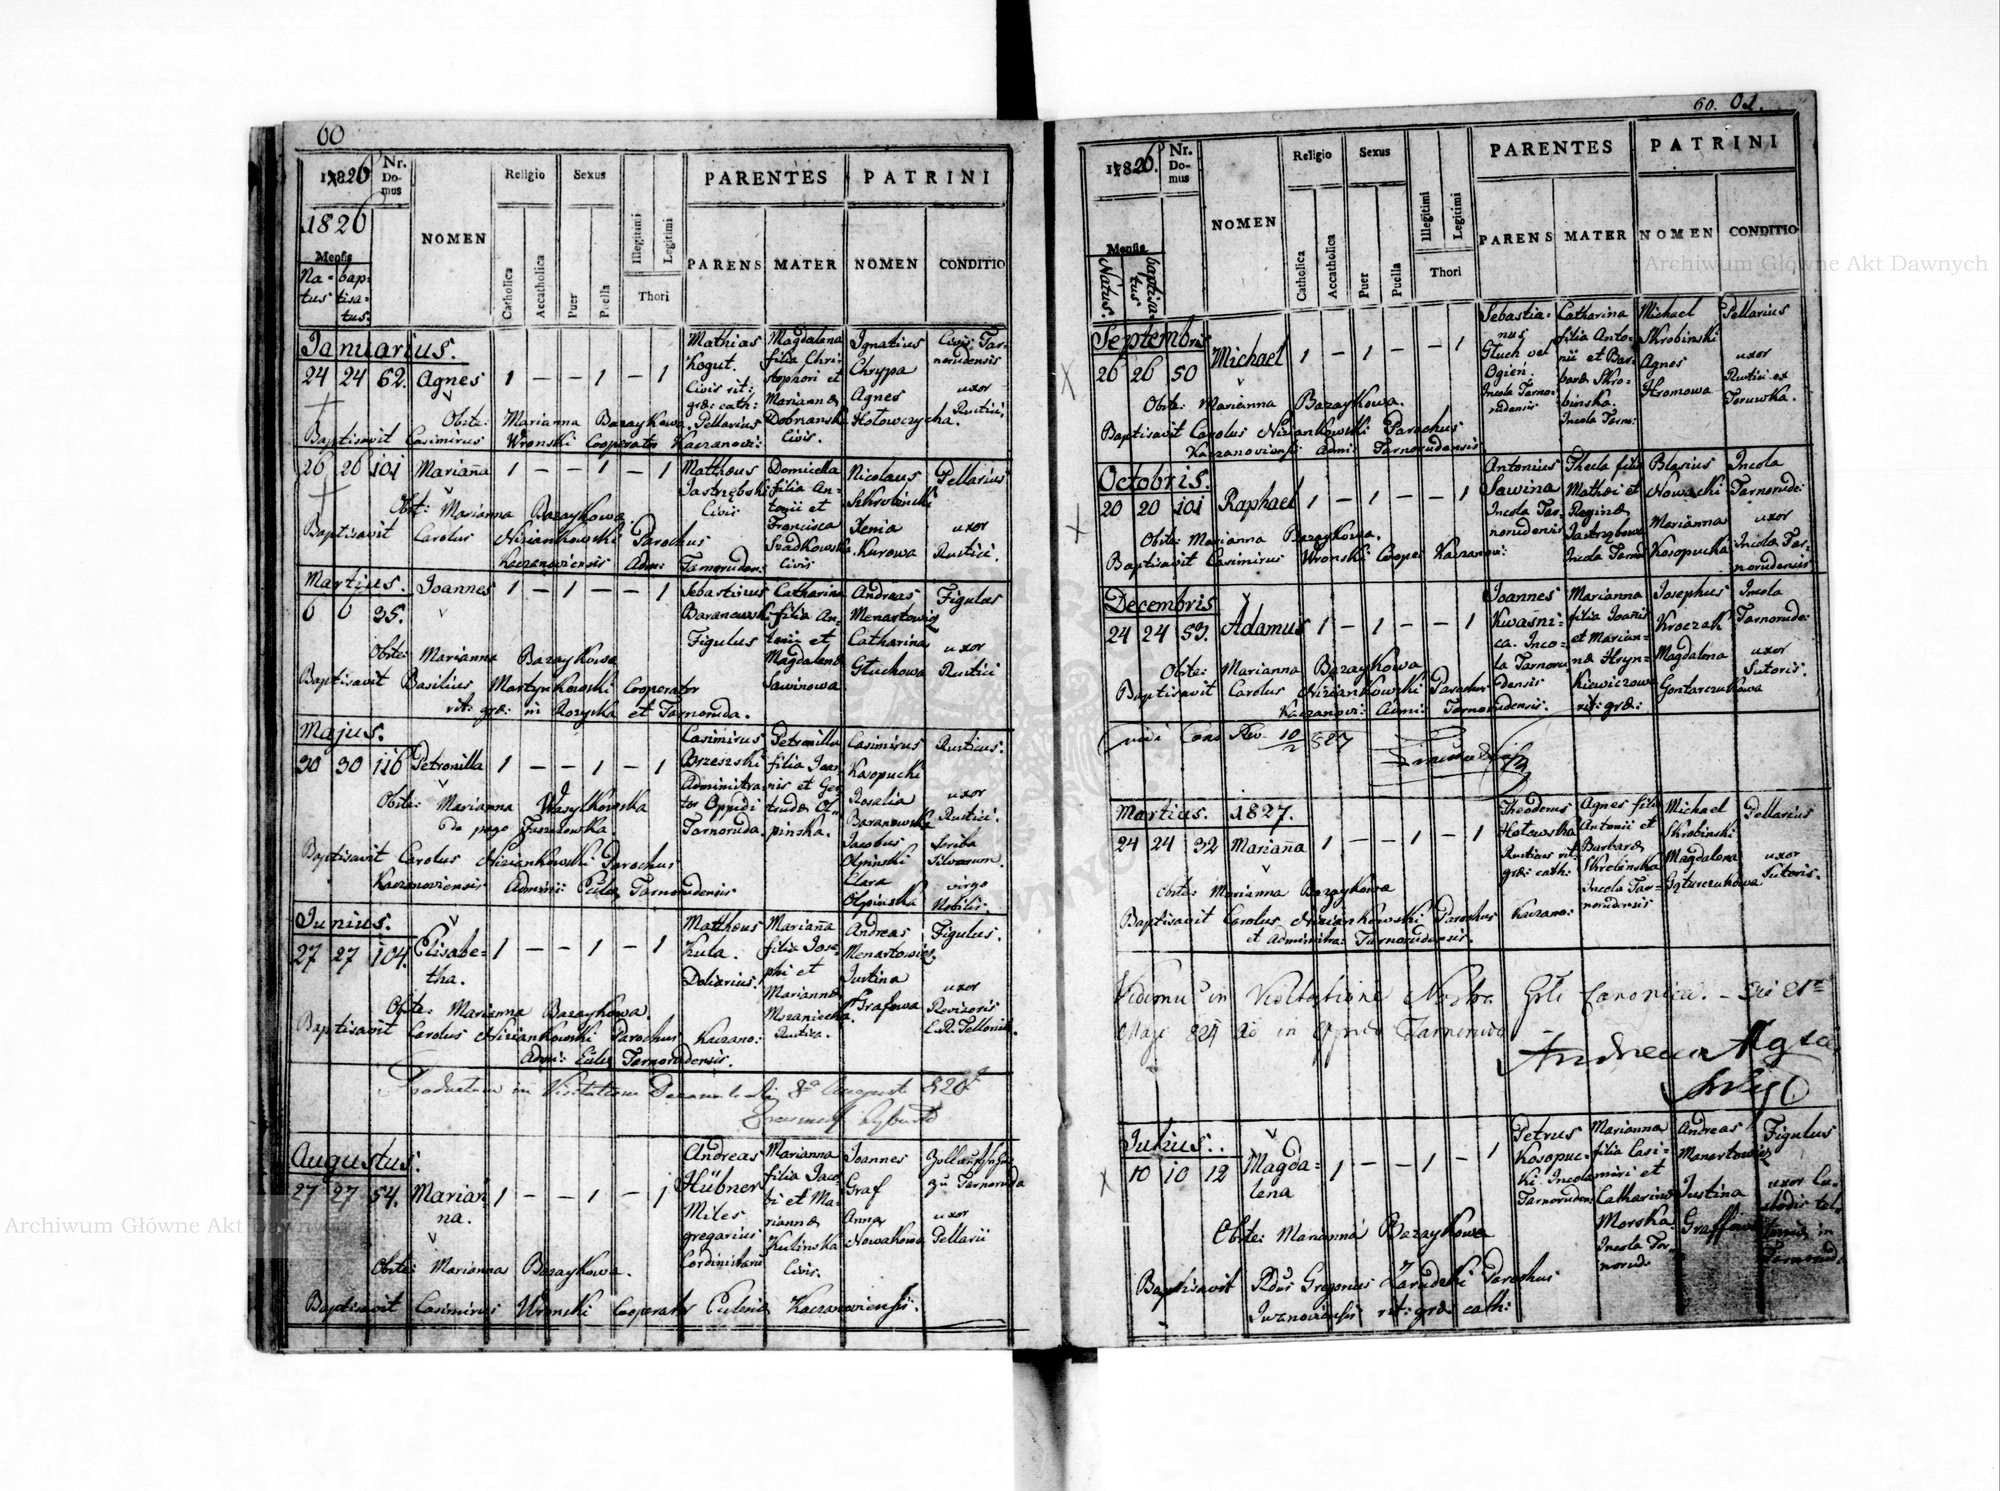 60
1826
Nr. Do-mus
NOMEN
Religio
Sexus
Illegitimi
Legitimi
PARENTES
PATRINI
1826
Mensis
Na-tus
bap-tisa-tus.
Catholica
Accatholica
Puer
Puella
Thori
PARENS
MATER
NOMEN
CONDITIO
Januarius.
24 24 62. Agnes 1 – – 1 – 1
Mathias Kogut. Civis rit: græ: cath: Pellarius
Magdalena filia Chri-stophori et Mariannæ Dobransk Civis.
Ignatius Chrypa
Agnes Hotowczycha.
Civis Tar-norudensis
uxor Rustici.
Obste: Marianna Bazaykowa.
Baptisavit Casimirus Wronski Cooperator Kaczanovi:
26 26 101 Mariana 1 – – 1 – 1
Mattheus Jastrzębski Civis
Domicella filia An-tonii et Francisca Szadkowska Civis
Nicolaus Skrobinski
Xenia Kurowa
Pellarius
uxor Rustici.
Obst: Marianna Bazaykowa
Baptisavit Carolus Niziankowski Parochus
Kaczanoviensis Adm: Tarnoruden:
Martius. Joannes 1 – 1 – – 1
6 6 35.
Sebastianus Baranowski Figulus
Catharina filia An-tonii et Magdalenæ Sawinowa
Andreas Menartowicz
Catharina Głuchowa
Figulus
uxor Rustici
Obste: Marianna Bazaykowa
Baptisavit Basilius Martynkowski Cooperator
rit: græ: in Rozyska et Tarnoruda.
Majus.
30 30 116 Petronilla 1 – – 1 – 1
Casimirus Brzezski Administra-tor Oppidi Tarnoruda.
Petronilla filia Joan-nis et Ger-trudæ Ol-pinska.
Casimirus Kosopucki
Rosalia Baranowska
Jacobus Olpinski
Clara Olpinska
Rusticus.
uxor Rustici.
Scriba Silvarum.
virgo Nobilis.
Obste: Marianna Wasylkowska
De pago Faszczowka.
Baptisavit Carolus Niziankowski Parochus
Kaczanoviensis Admini: Eccles Tarnorudensis
Junius.
27 27 104. Elisabe-tha. 1 – – 1 – 1
Mattheus Kula. Doliarius.
Mariana filia Jose-phi et Mariannæ Mozaniecka Rustica.
Andreas Menartowicz.
Justina Grafowa
Figulus.
uxor Revisoris C.R. Tellonii.
Obste: Marianna Bazaykowa.
Baptisavit Carolus Niziankowski Parochus Kaczano:
Adm: Eccles Tarnorudensis.
Productum in Visitatione Decanali Die 8a Augusti 826
Augustus.
27 27 54. Marian-na. 1 – – 1 – 1
Andreas Hübner Miles gregarius Cordinistarum
Marianna filia Jaco-bi et Ma-riannæ Kulinska Civis.
Joannes Graf
Anna Nowakowa
Zollaufseher zu Tarnoruda
uxor Pellarii
Obste: Marianna Bazaykowa.
Baptisavit Casimirus Wronski Cooperator Ecclesiæ Kaczanoviensis.
60. 61.
1826.
Nr. Do-mus
NOMEN
Religio
Sexus
Illegitimi
Legitimi
PARENTES
PATRINI
Mensis
Natus.
baptisa-tus.
Catholica
Accatholica
Puer
Puella
Thori
PARENS
MATER
NOMEN
CONDITIO
Septembris
26 26 50 Michael 1 – 1 – – 1
Sebastia-nus Głuch vel Ogien. Incola Tarno-rudensis
Catharina filia Anto-nii et Bar-baræ Skro-binska. Incola Tarno:
Michael Skrobinski
Agnes Hromowa
Pellarius
uxor Rustici ex Toruwka.
Obste: Marianna Bazaykowa.
Baptisavit Carolus Niziankowski Parochus
Kaczanoviensis Admi: Tarnorudensis
Octobris.
20 20 101 Raphael 1 – 1 – – 1
Antonius Sawina Incola Tar-norudensis
Thecla filia Mathæi et Reginæ Jastrzębowa Incola Tarnod
Blasius Nowacki
Marianna Kosopucka
Incola Tarnorude:
uxor Incolæ Tar-norudensis
Obste: Marianna Bazaykowa.
Baptisavit Casimirus Wronski Cooper Kaczanovi:
Decembris
24 24 59. Adamus 1 – 1 – – 1
Joannes Kwasni-ca. Inco-la Tarnoru-densis
Marianna filia Joanis et Marian-næ Hryn-kiewiczowa rit: græ:
Josephus Kroczak
Magdalena Gontarczukowa
Incola Tarnorude:
uxor Sutoris.
Obste: Marianna Bazaykowa
Baptisavit Carolus Niziankowski Parochus
Kaczanovi: Admi: Tarnorudensis.
10/2 827
Martius. 1827.
24 24 32 Mariana 1 – – 1 – 1
Theodorus Hotowska Rusticus rit: græ: cath:
Agnes filia Antonii et Barbaræ Skrobinska Incola Tar-norudensis
Michael Skrobinski
Magdalena Gąturczukowa
Pellarius
uxor Sutoris.
Obste: Marianna Bazaykowa
Baptisavit Carolus Niziankowski Parochus Kaczano:
et Administra: Tarnorudensis.
Vidimus in Visitatione Nostra Grli Canonica. – Die 21a
Maji 827 in Oppido Tarnoruda
Andreas
Julius..
10 10 12 Magda-lena 1 – – 1 – 1
Petrus Kosopuc-ki Incola Tarnoruden:
Marianna filia Casi-miri et Catharinæ Morska Incola Tar-norud:
Andreas Menartowicz
Justina Graffowa
Figulus
uxor Cu-stodis tel-lonii in Tarnorud:
Obste: Marianna Bazaykowa
Baptisavit Rdus Gregorius Zarudzki Parochus
Iwanoviensis rit: græ cath:
Archiwum Główne Akt Dawnych
Archiwum Główne Akt Dawnych